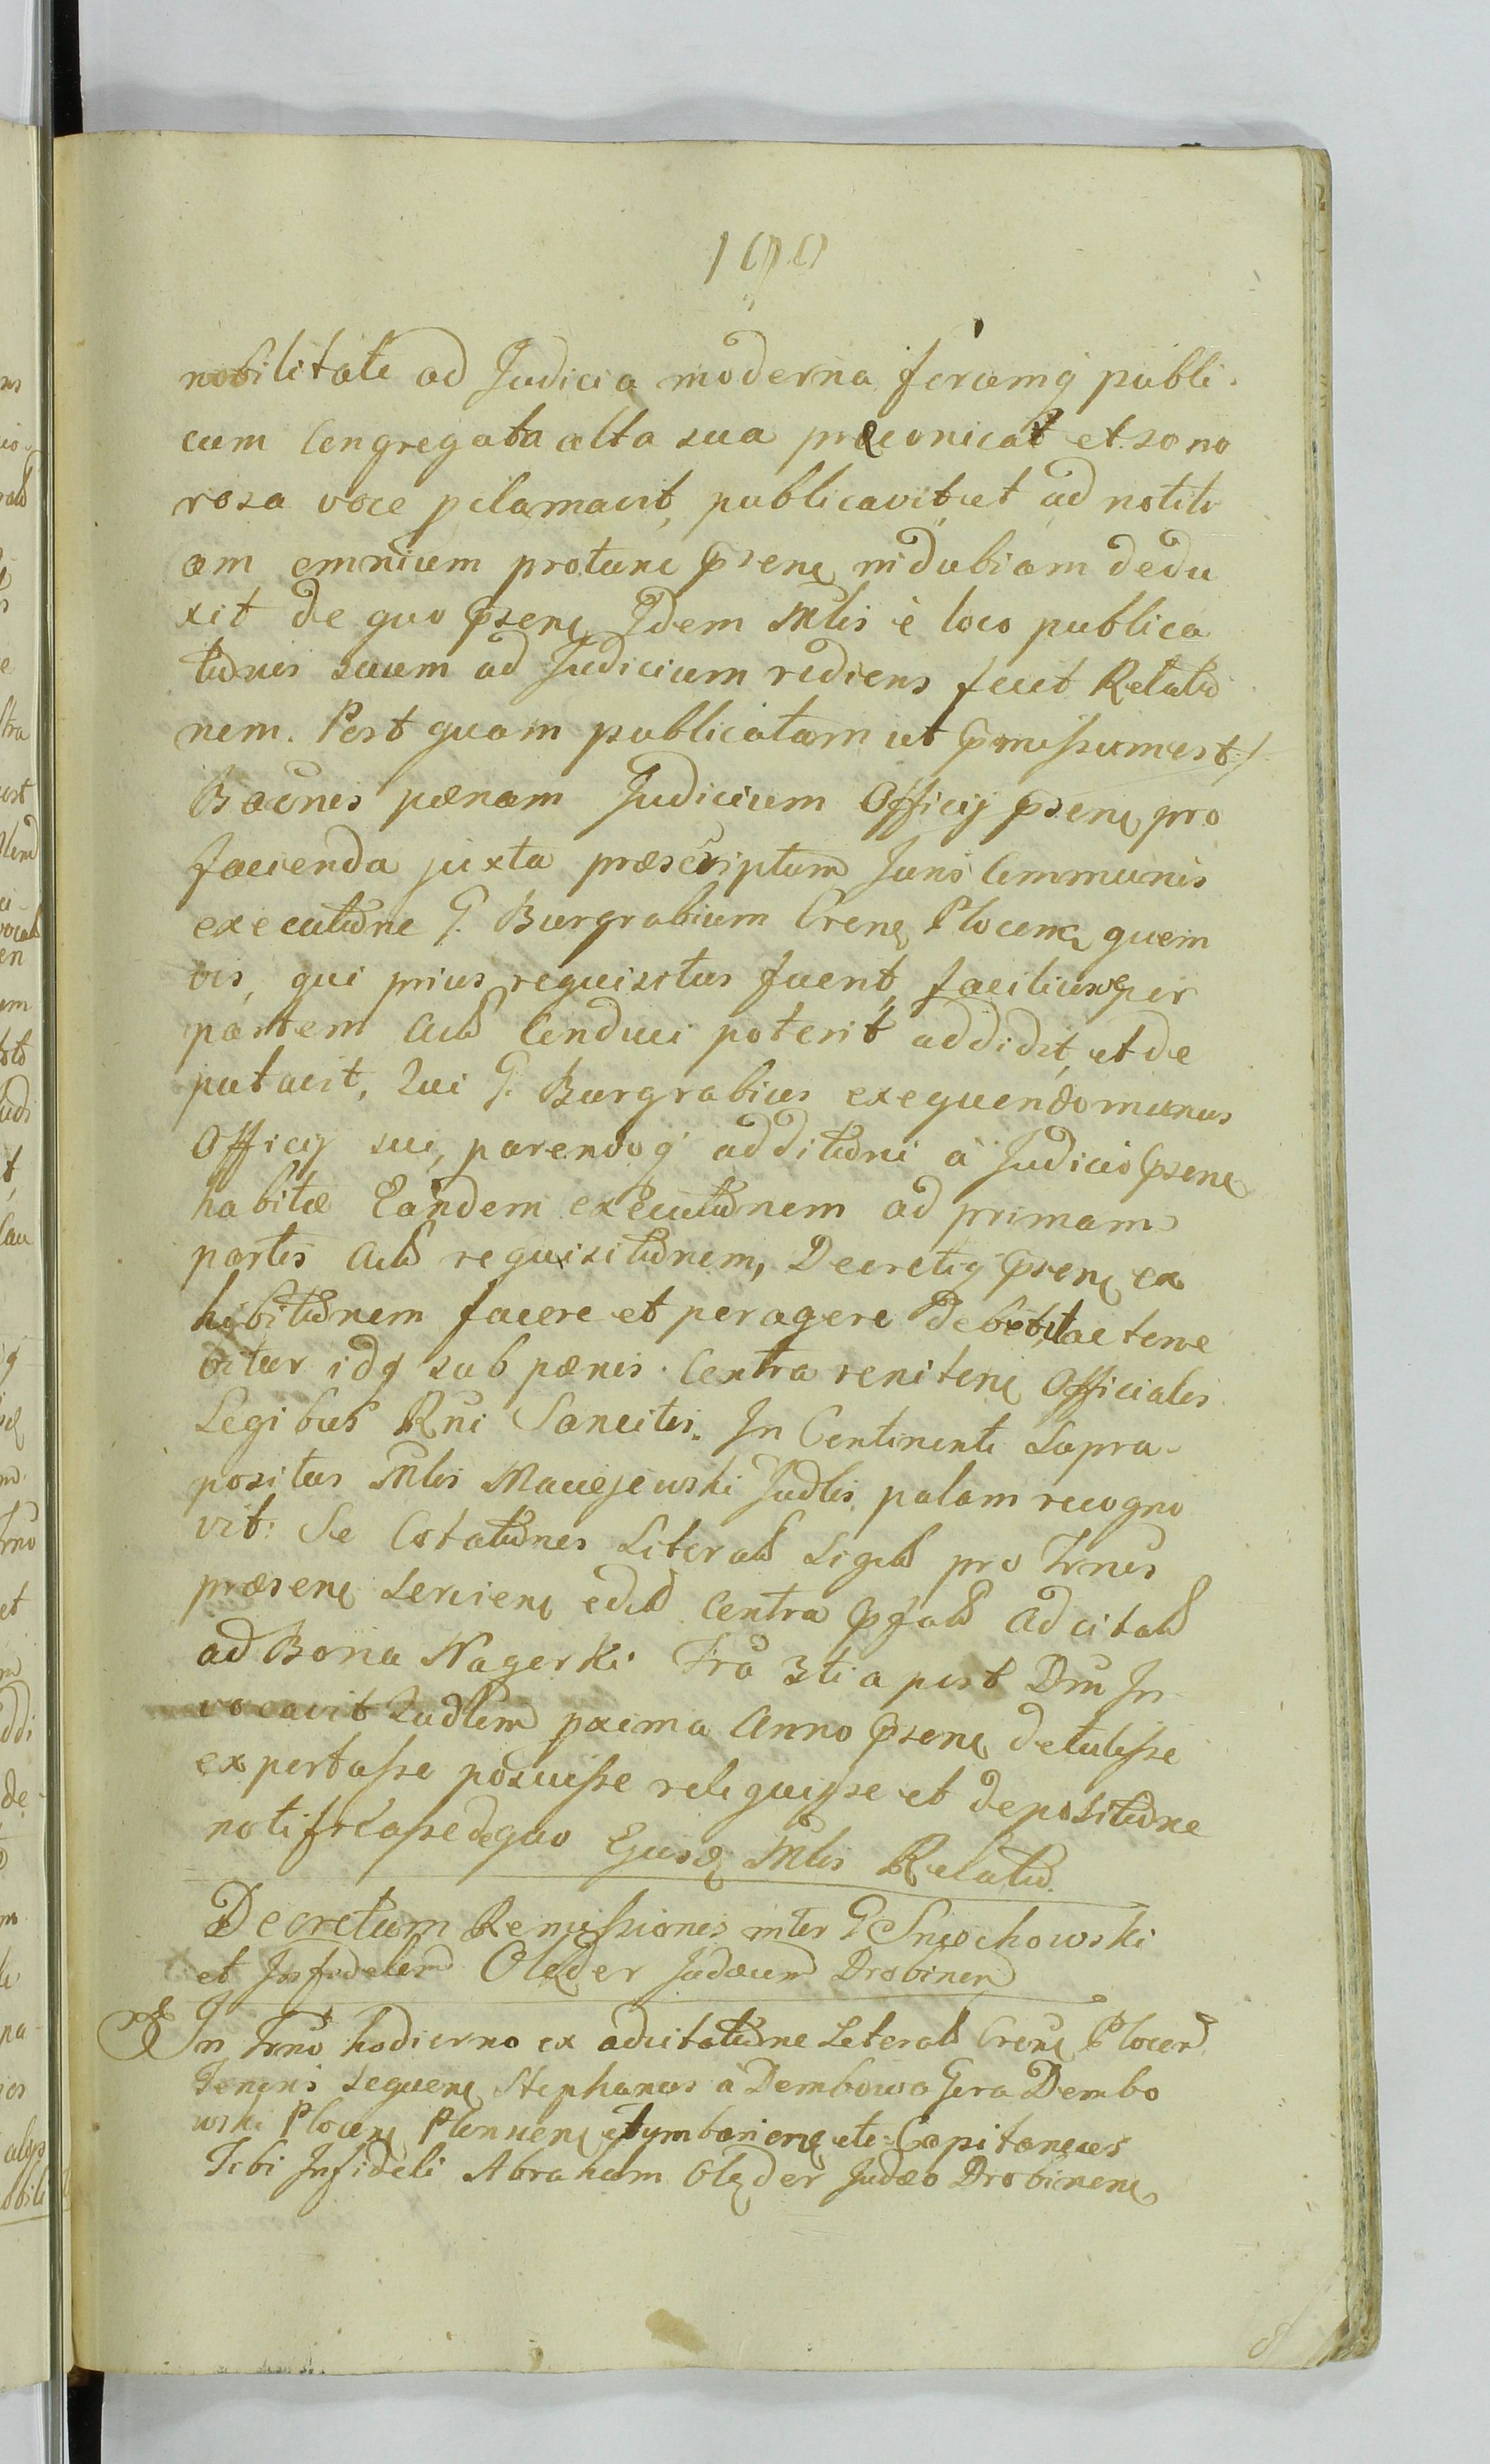 190
nobilitate ad Judicia moderna forumq publi-
cum Congregata alta sua præconicat et sono
rosa voce pclamavit, publicavit, et ad notiti
am omnium protunc psene indubiam dedu
xit de quo psene Idem Mlis è loco publica
tionis suum ad Judicium rediens fecit Relatio
nem. Post quam publicatam ut pmissum est /
Baonis pænam Judicium Officij psene pro
facienda juxta præscriptum Juris Communis
executione G. Burgrabium Crene Plocene quem
vis, qui prius requisitus fuerit, faciliusve per
partem Actd Conduci poterit addidit, et de
putavit, Qui G. Burgrabius exequendo munus
Officij sui, parendoq additioni à Judicio psene
habitæ Eandem executionem ad primam
partis Actd requisitionem, Decretiq psene ex
hibitionem facere et peragere debebit, ac tene
bitur idq sub pænis Contra reniten Officiales
Legibus Rni Sancitis. In Continenti Supra-
positus Mlis Maciejewski Judlis palam recogno
vit: Se Cotationes Literald Sigild pro Trnis
præsene Serviene edid Contra psald Adcitald
ad Bona Nagorki Fra 3tia post Dm In
vocavit Judlem pxima Anno psene detulisse
exportasse posuisse reliquisse et depositione
notificasse de quo Ejusd Mlis Relatio
Decretum Remissionis inter G Sniechowski
et Infidelem Olęder Judæum Drobinen
In Trno hodierno ex adcitatione Literald Crene Plocen
Tenoris sequene Stephanus à Dembowa Gora Dembo
wski Plocene Plonsene Tymbariene etc Capitaneus
Tibi Infideli Abraham Olęder Judæo Drobinene